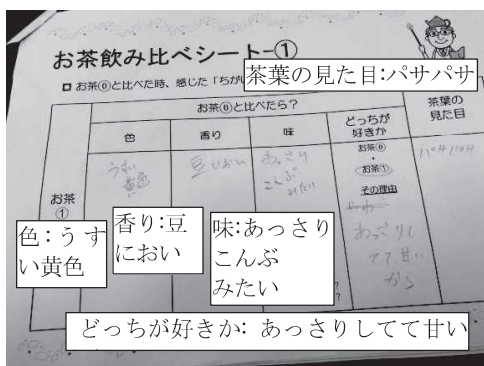 お茶飲み比べシート-①
□ お茶⓪と比べた時、感じた「ちが
茶葉の見た目:パサパサ
お茶⓪と比べたら?
茶葉の
見た目
色
香り
味
どっちが
好きか
お茶
①
うすい
黄色
豆においい
あっさり
こんぶ
みたい
お茶⓪
・
お茶①
その理由
あっさりして
てて、甘い
から
パサパサ
色:うす
い黄色
香り:豆
におい
味:あっさり
こんぶ
みたい
どっちが好きか: あっさりしてて甘い